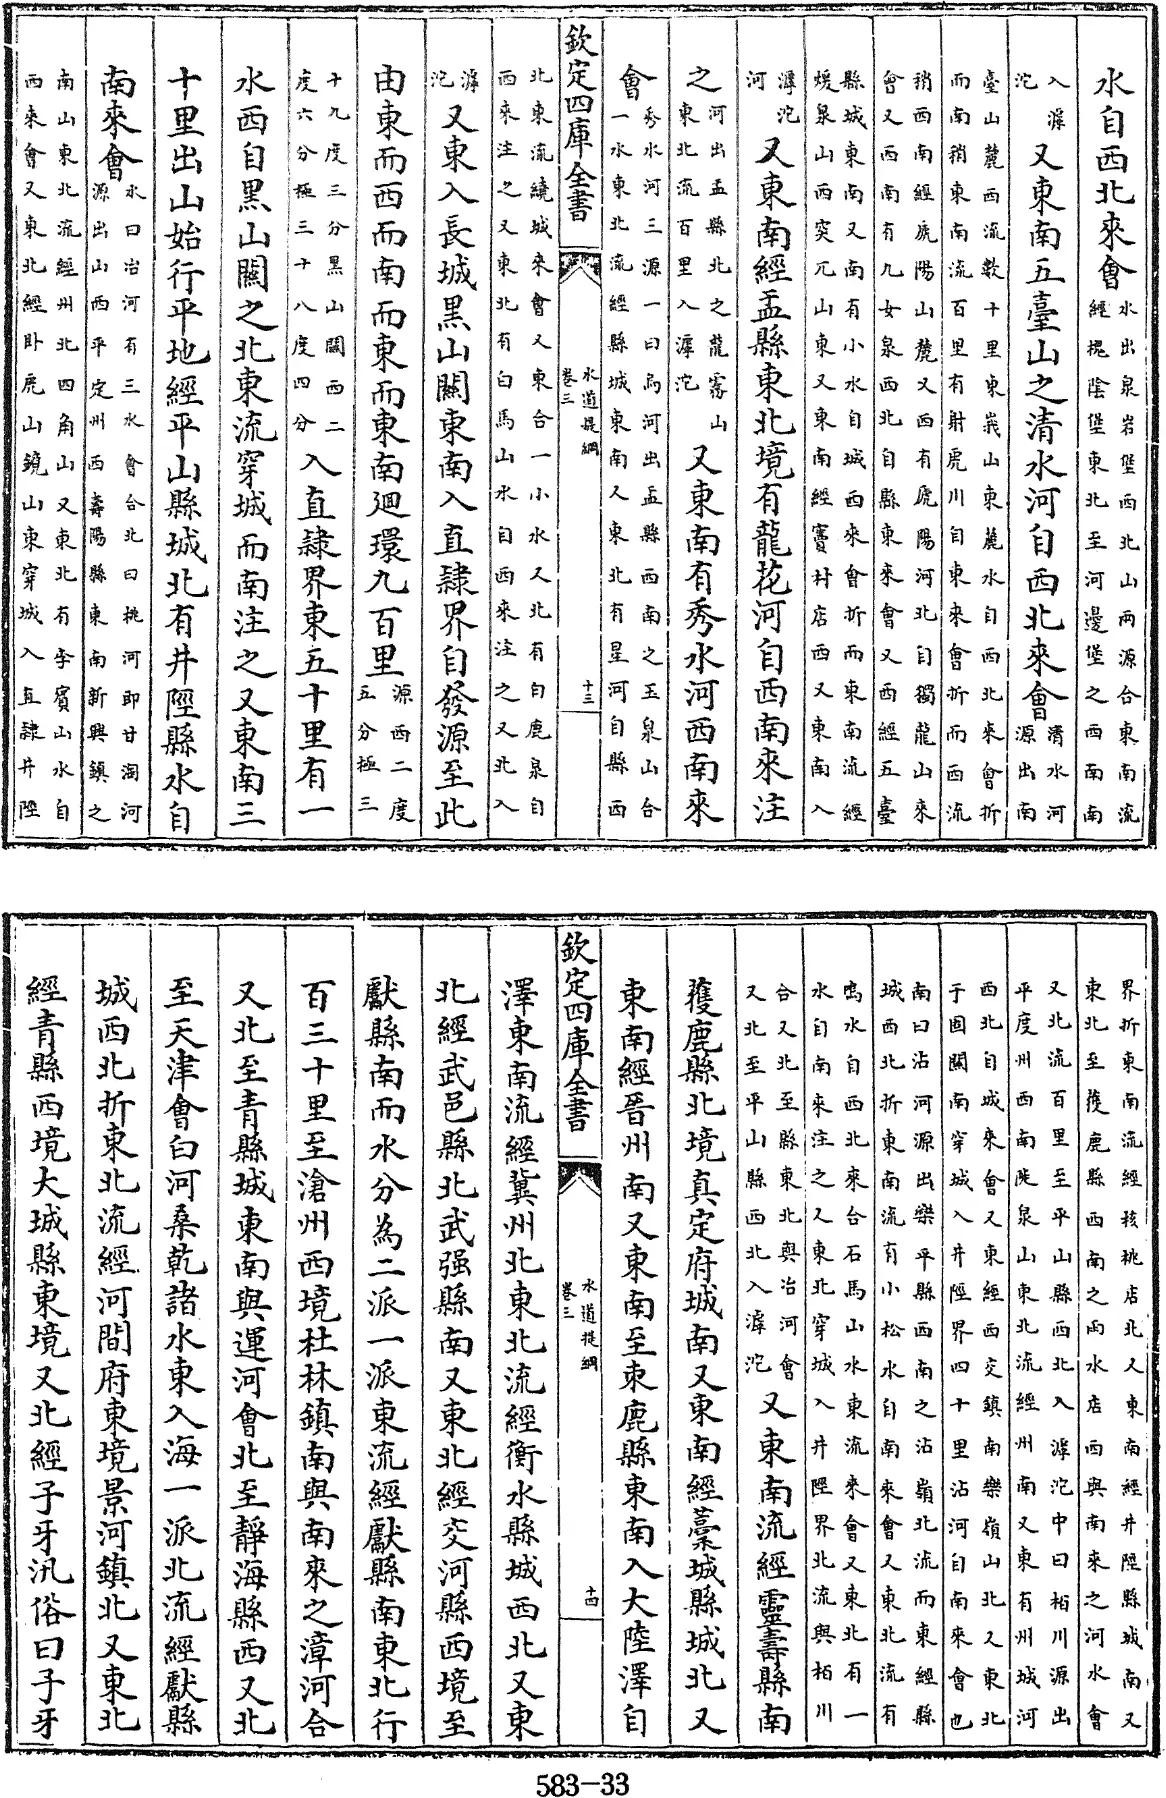 水自西北來會
水出泉岩堡西北山兩源合東南流
經槐陰堡東北至河邊堡之西南南
入滹
沱
又東南五臺山之清水河自西北來會
清水河
源出南
臺山麓西流數十里東峩山東麓水自西北來會折
而南稍東南流百里有射虎川自東來會折而西流
稍西南經虎陽山麓又西有虎陽河北自獨龍山來
會又西南有九女泉西北自縣東來會又西經五臺
縣城東南又南有小水自城西來會折而東南流經
煖泉山西突兀山東又東南經竇村店西又東南入
滹沱
河
又東南經盂縣東北境有龍花河自西南來注
之
河出盂縣北之龍霧山
東北流百里入滹沱
又東南有秀水河西南來
會
秀水河三源一曰烏河出盂縣西南之玉泉山合
一水東北流經縣城東南又東北有星河自縣西
欽定四庫全書
水道提綱
卷三
十三
北東流繞城來會又東合一小水又北有白鹿泉自
西來注之又東北有白馬山水自西來注之又北入
滹
沱
又東入長城黑山關東南入直隸界自發源至此
由東而西而南而東而東南廻環九百里
源西二度
五分極三
十九度三分黑山關西二
度六分極三十八度四分
入直隸界東五十里有一
水西自黑山關之北東流穿城而南注之又東南三
十里出山始行平地經平山縣城北有井陘縣水自
南來會
水曰冶河有三水會合北曰桃河即甘淘河
源出山西平定州西壽陽縣東南新興鎮之
南山東北流經州北四角山又東北有李賓山水自
西來會又東北經卧虎山鏡山東穿城入直隸井陘
界折東南流經核桃店北又東南經井陘縣城南又
東北至獲鹿縣西南之雨水店西與南來之河水會
又北流百里至平山縣西北入滹沱中曰栢川源出
平度州西南陡泉山東北流經州南又東有州城河
西北自城來會又東經西交鎮南樂嶺山北又東北
于固關南穿城入井陘界四十里沾河自南來會也
南曰沾河源出樂平縣西南之沾嶺北流而東經縣
城西北折東南流有小松水自南來會又東北流有
鳴水自西北來合石馬山水東流來會又東北有一
水自南來注之又東北穿城入井陘界北流與栢川
合又北至縣東北與冶河會
又北至平山縣西北入滹沱
又東南流經靈壽縣南
獲鹿縣北境真定府城南又東南經藁城縣城北又
東南經晉州南又東南至束鹿縣東南入大陸澤自
欽定四庫全書
水道提綱
卷三
十四
澤東南流經冀州北東北流經衡水縣城西北又東
北經武邑縣北武强縣南又東北經交河縣西境至
獻縣南而水分為二派一派東流經獻縣南東北行
百三十里至滄州西境杜林鎮南與南來之漳河合
又北至青縣城東南與運河會北至靜海縣西又北
至天津會白河桑乾諸水東入海一派北流經獻縣
城西北折東北流經河間府東境景河鎮北又東北
經青縣西境大城縣東境又北經子牙汛俗曰子牙
583-33